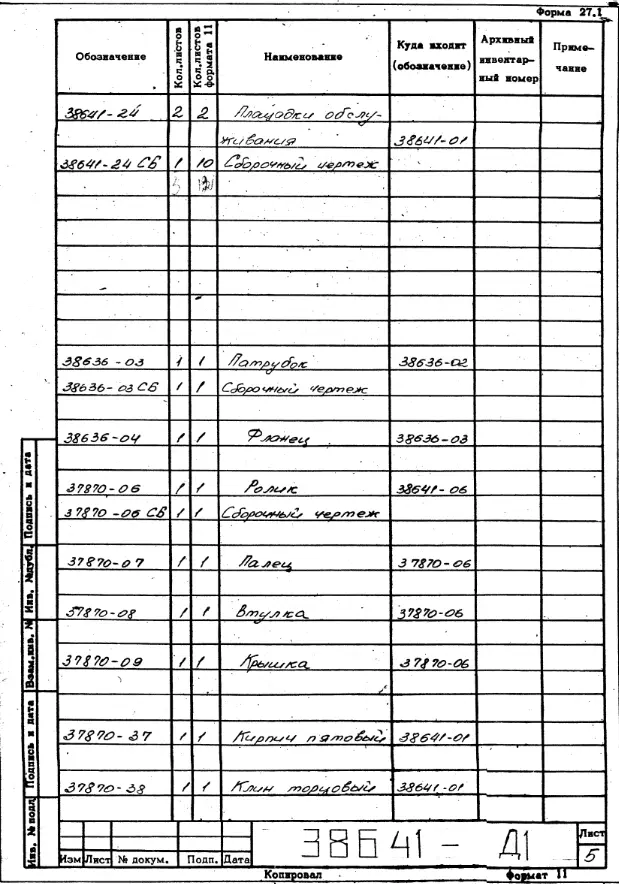 Форма 27.1
Обозначение Кол.листов Кол.листов формата 11 Наименование Куда входит (обозначение) Архивный инвентарный номер Примечание
38641-24 2 2 Площадки обслу-
живания 38641-01
38641-24 СБ 1 10 Сборочный чертеж
38636-03 1 1 Патрубок 38636-02
38636-03 СБ 1 1 Сборочный чертеж
38636-04 1 1 Фланец 38636-03
37870-06 1 1 Ролик 38641-06
37870-06 СБ 1 1 Сборочный чертеж
37870-07 1 1 Палец 37870-06
37870-08 1 1 Втулка 37870-06
37870-09 1 1 Крышка 37870-06
37870-37 1 1 Кирпич пятовый 38641-01
37870-38 1 1 Клин торцовый 38641-01
Подпись и дата
Инв. №дубл.
Взам.инв. №
Подпись и дата
Инв. №подл
38641- Д1
Лист
5
Изм Лист № докум. Подп. Дата
Копировал Формат 11